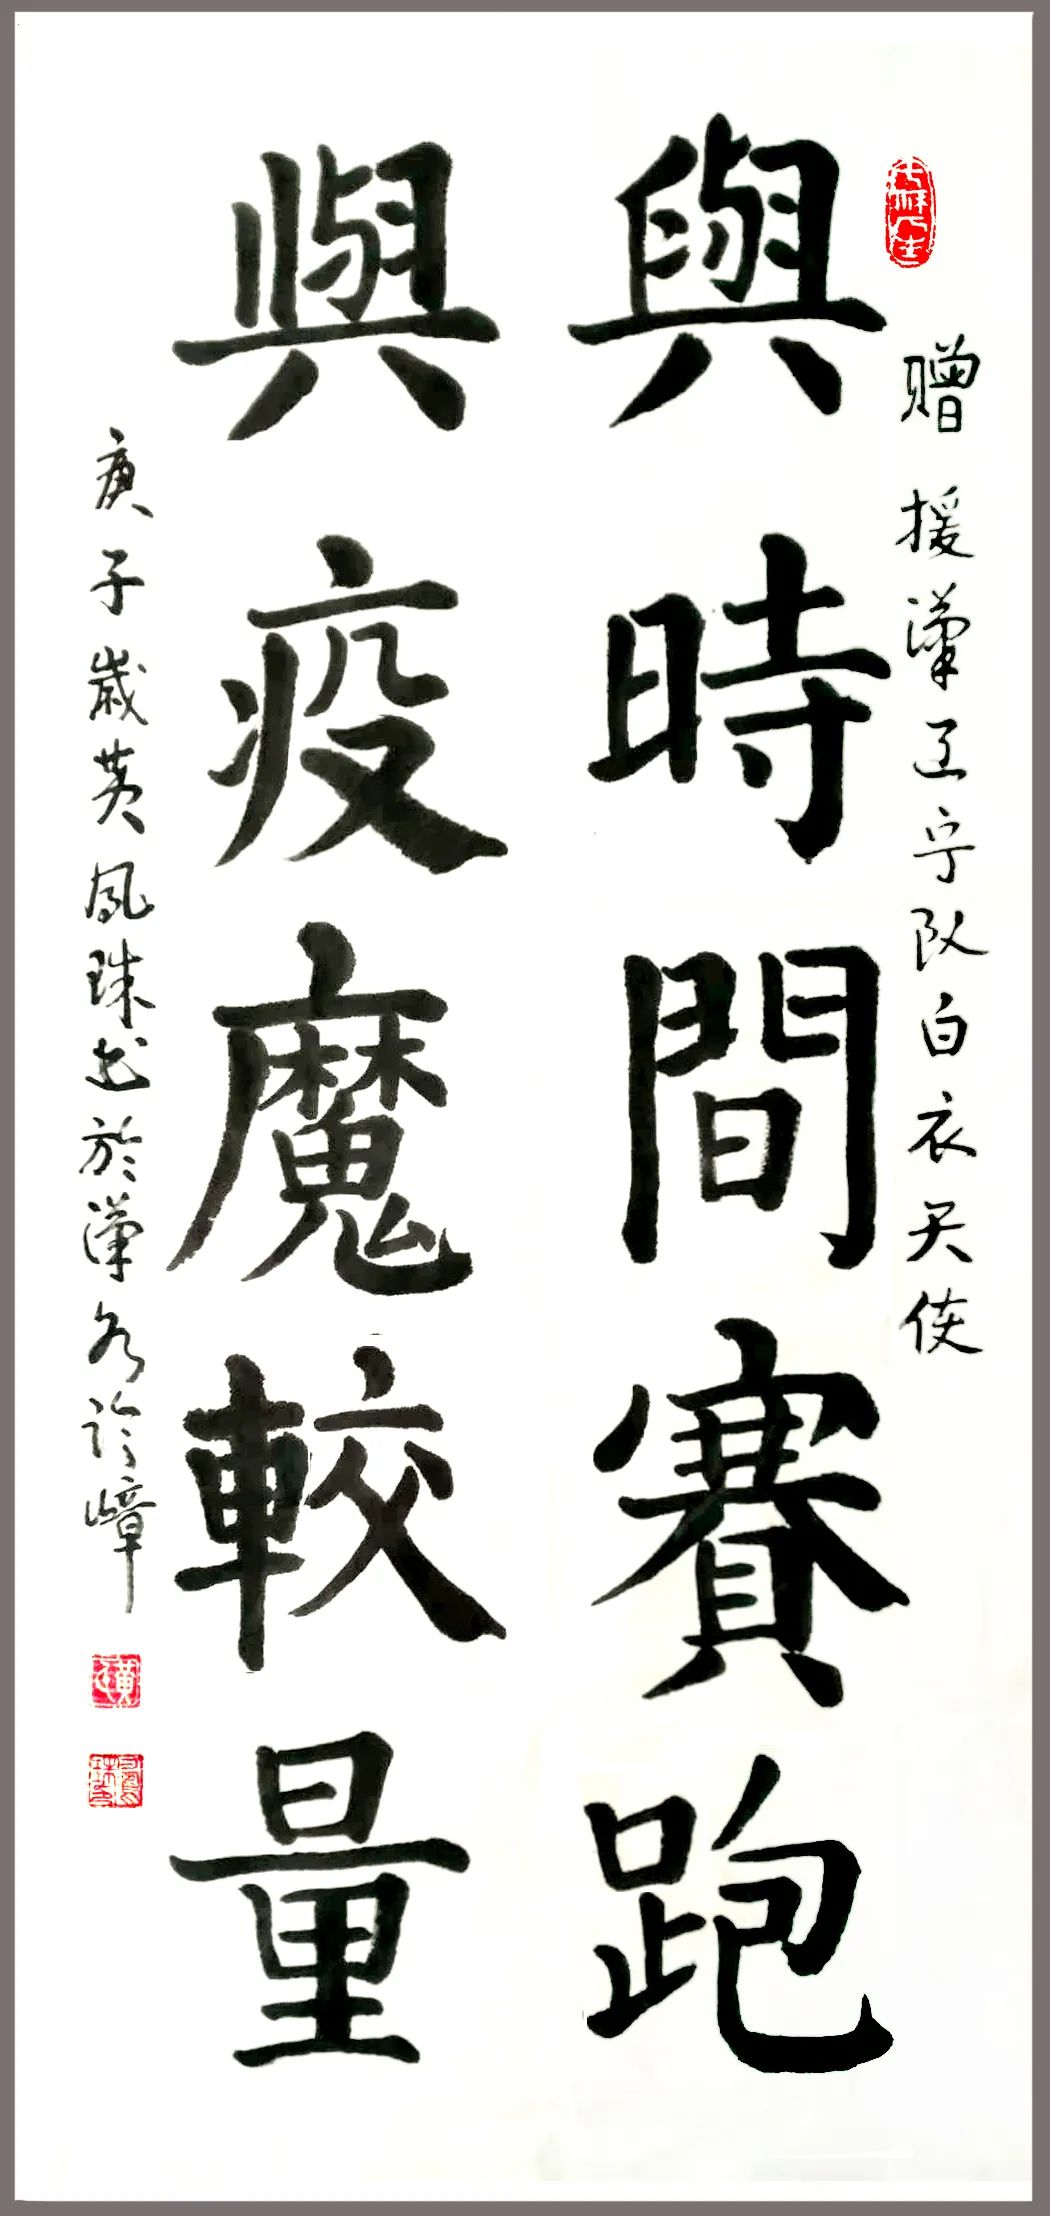 赠 援漢医疗队白衣天使
與時間賽跑
與疫魔較量
庚子歲黄凤珠书於漢